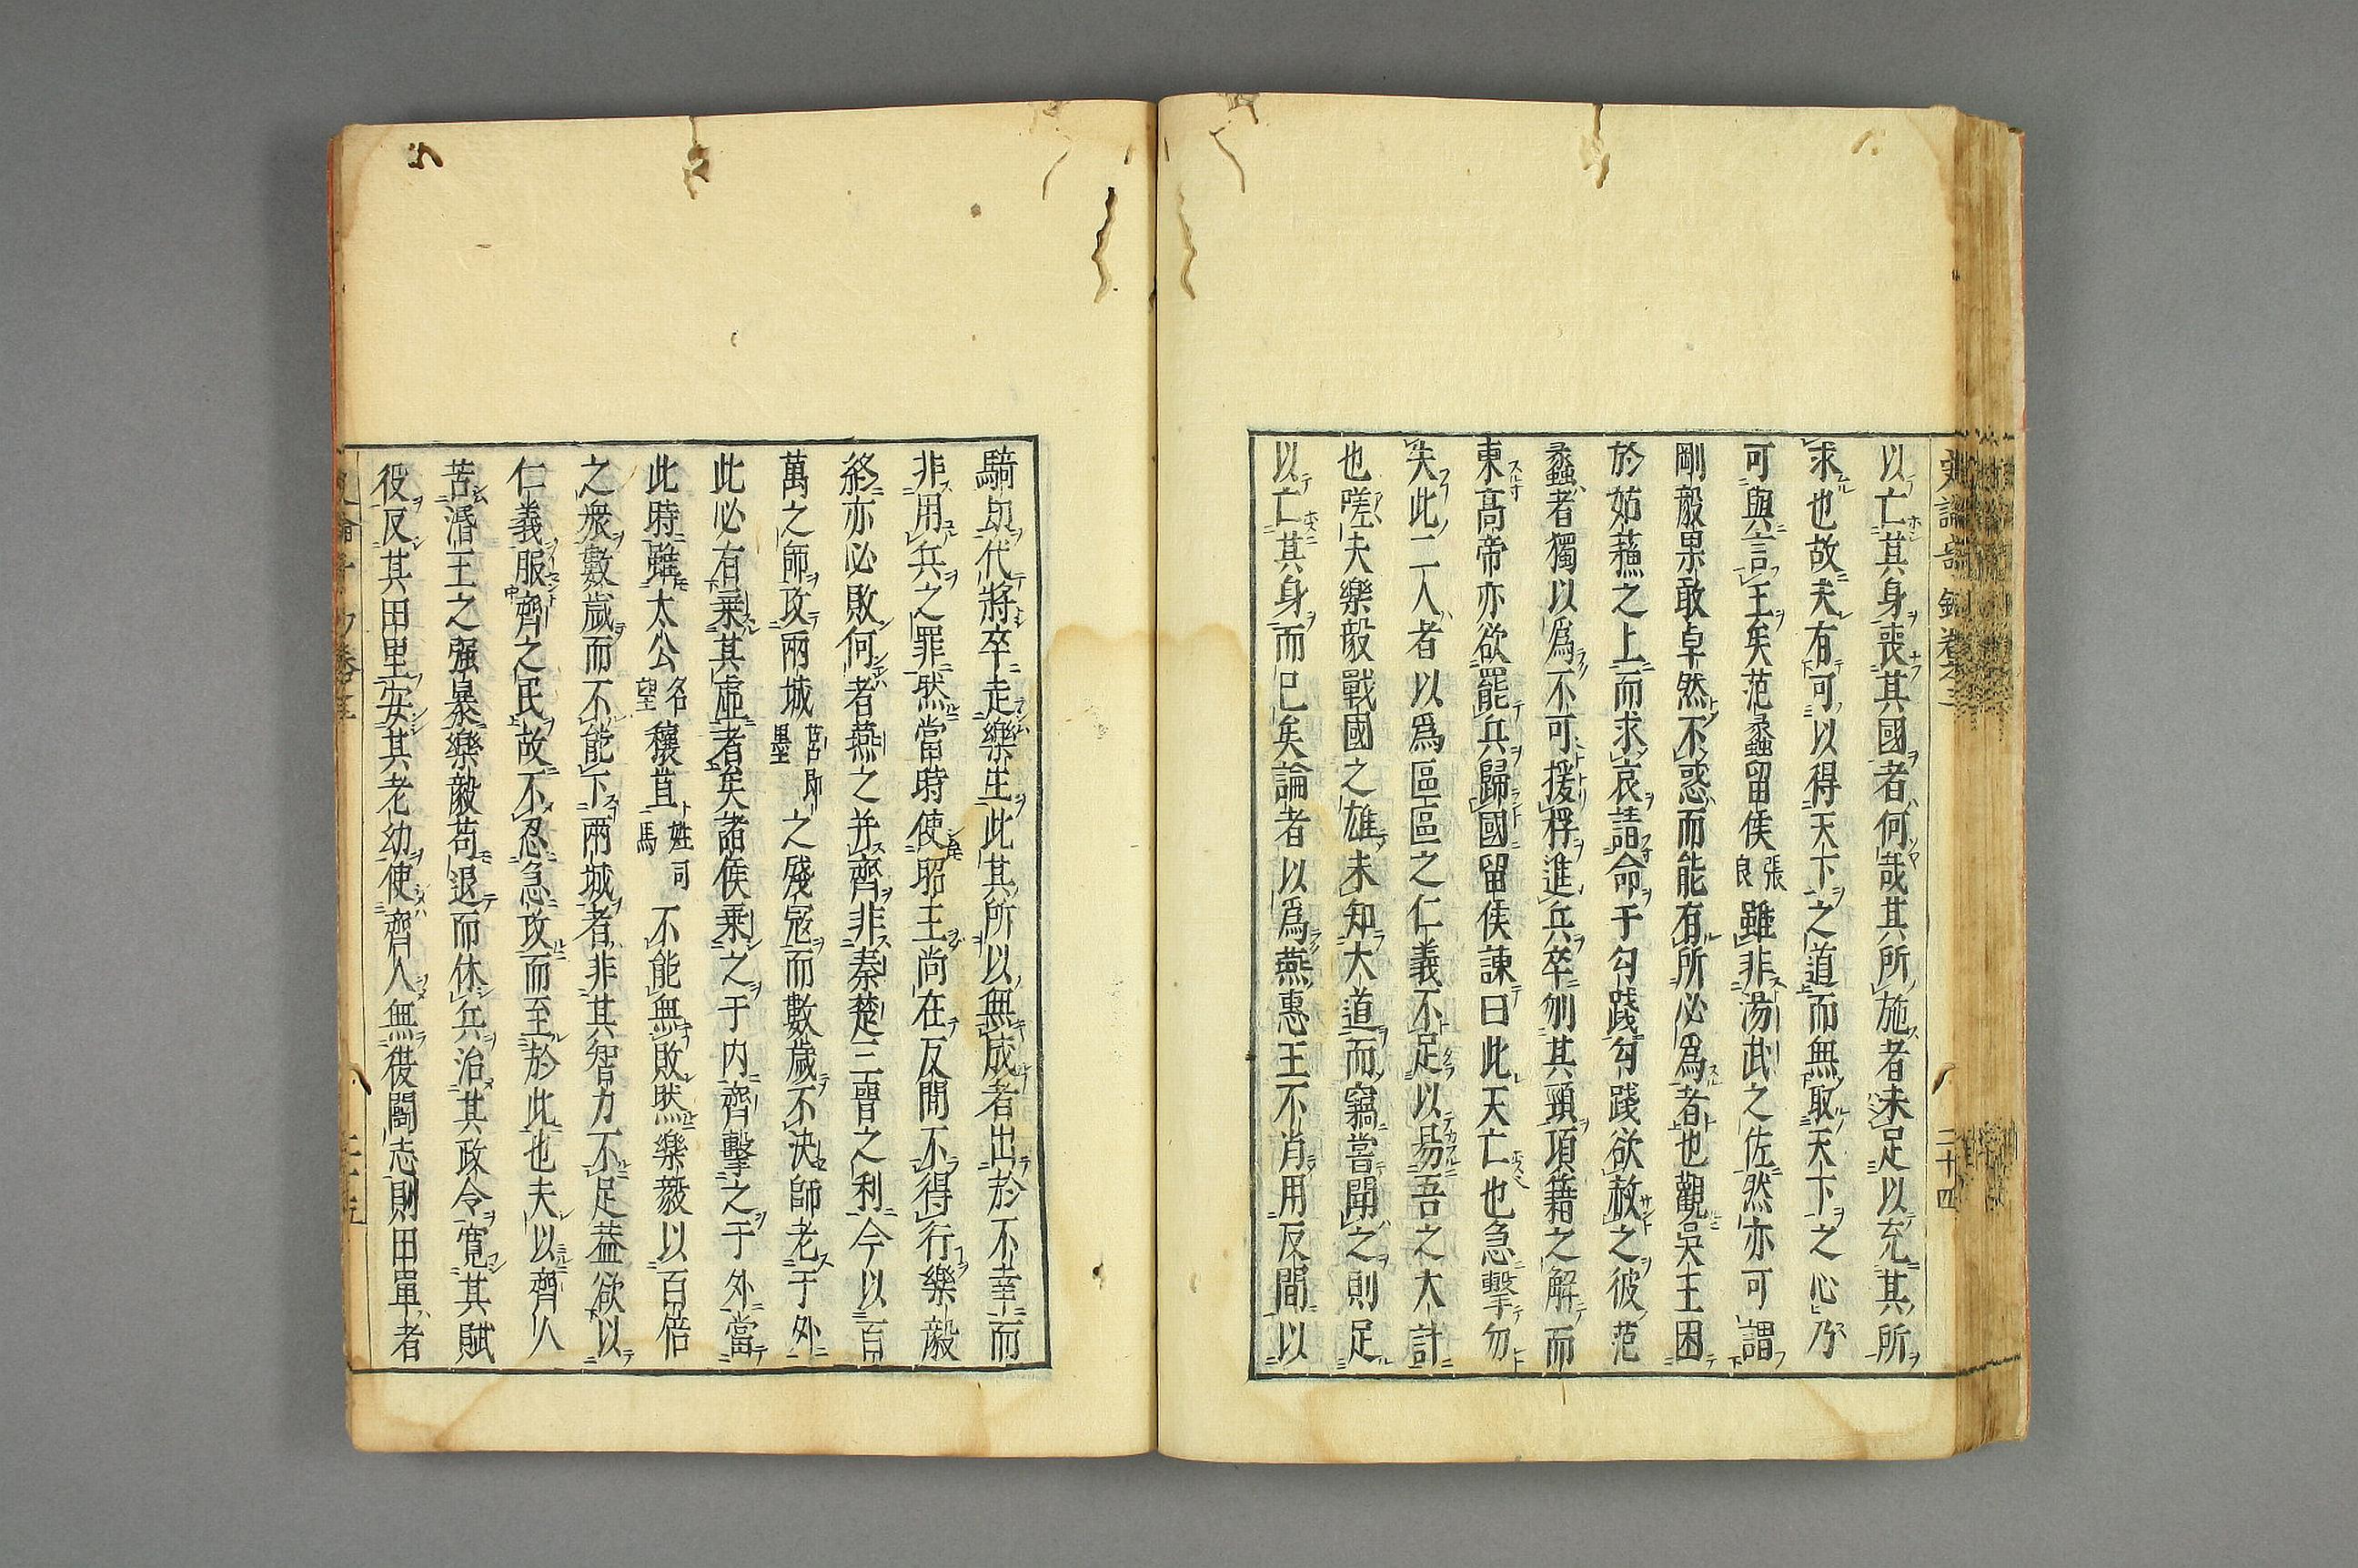 以亡其身喪其國者何哉其所施者未足以充其所
求也故夫有可以得天下之道而無取天下之心乃
可與言王矣范蠡留侯張良雖非湯武之佐然亦可謂
剛毅果敢卓然不惑而能有所必爲者也觀吳王困
於姑蘓之上而求哀請命于勾踐勾踐欲赦之彼范
蠡者獨以爲不可援桴進兵卒刎其頸項籍之解而
東高帝亦欲罷兵歸國留侯諌曰此天亡也急擊勿
失此二人者以爲區區之仁義不足以昜吾之大計
也嗟夫樂毅戰國之雄未知大道而竊嘗聞之則足
以亡其身而已矣論者以爲燕惠王不肖用反間以
二十四
騎刼代將卒走樂生此其所以無成者出於不幸而
非用兵之罪然當時使昭王尚在反間不得行樂毅
終亦必敗何者燕之并齊非秦楚三晉之利今以百
萬之師攻兩城莒即墨之殘冦而數歲不决師老于外
此必有乗其虛者矣諸侯乗之于内齊擊之于外當
此時雖太公名望穰苴姓司馬不能無敗然樂毅以百倍
之衆數歲而不能下兩城者非其智力不足葢欲以
仁義服齊之民故不忍急攻而至於此也夫以齊人
苦湣王之强暴樂毅苟退而休兵治其政令寬其賦
役反其田里安其老幼使齊人無復鬬志則田單者